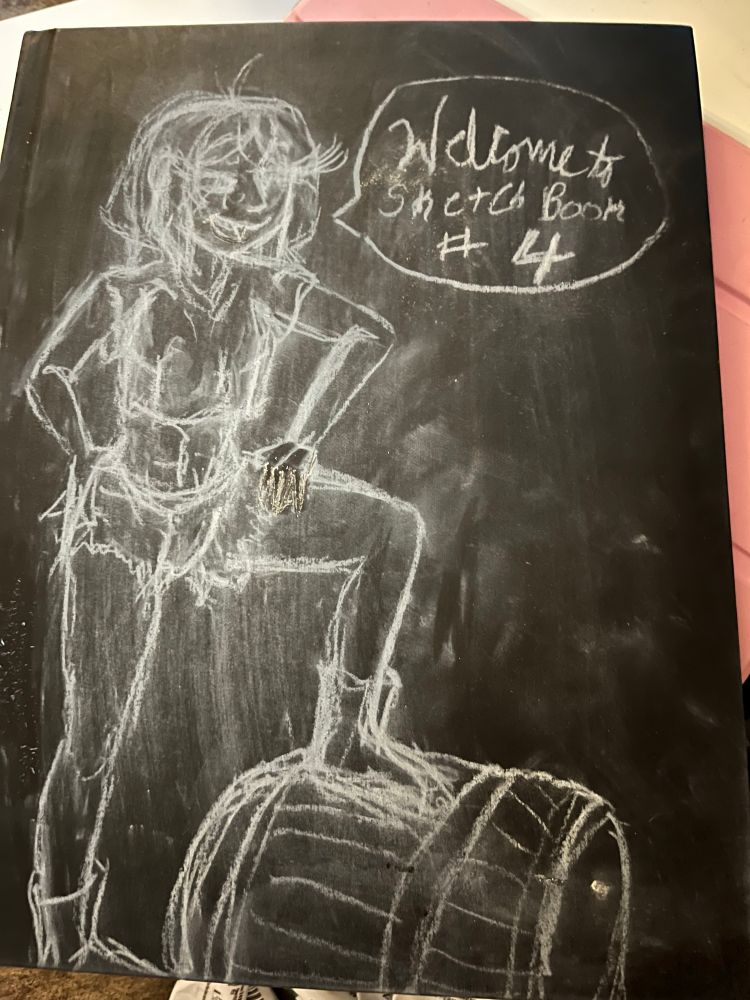 Welcome to
Sketch Book
# 4